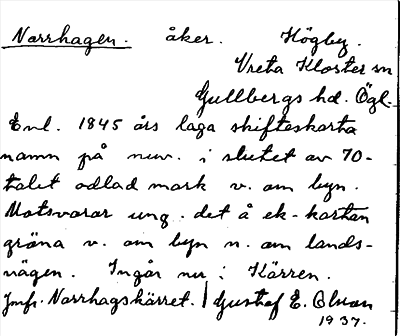 Norrhagen. åker. Högby.
Vreta Kloster sn
Gullbergs hd. Ögl.
Enl. 1845 års laga skifteskarta
namn på nuv. i slutet av 70-
talet odlad mark v. om byn.
Motsvarar ung. det å ek-kartan
gröna v. om byn n. om lands-
vägen. Ingår nu i Kärren.
Jmfr. Norrhagskärret. / Gustaf E. Olsson
1937.